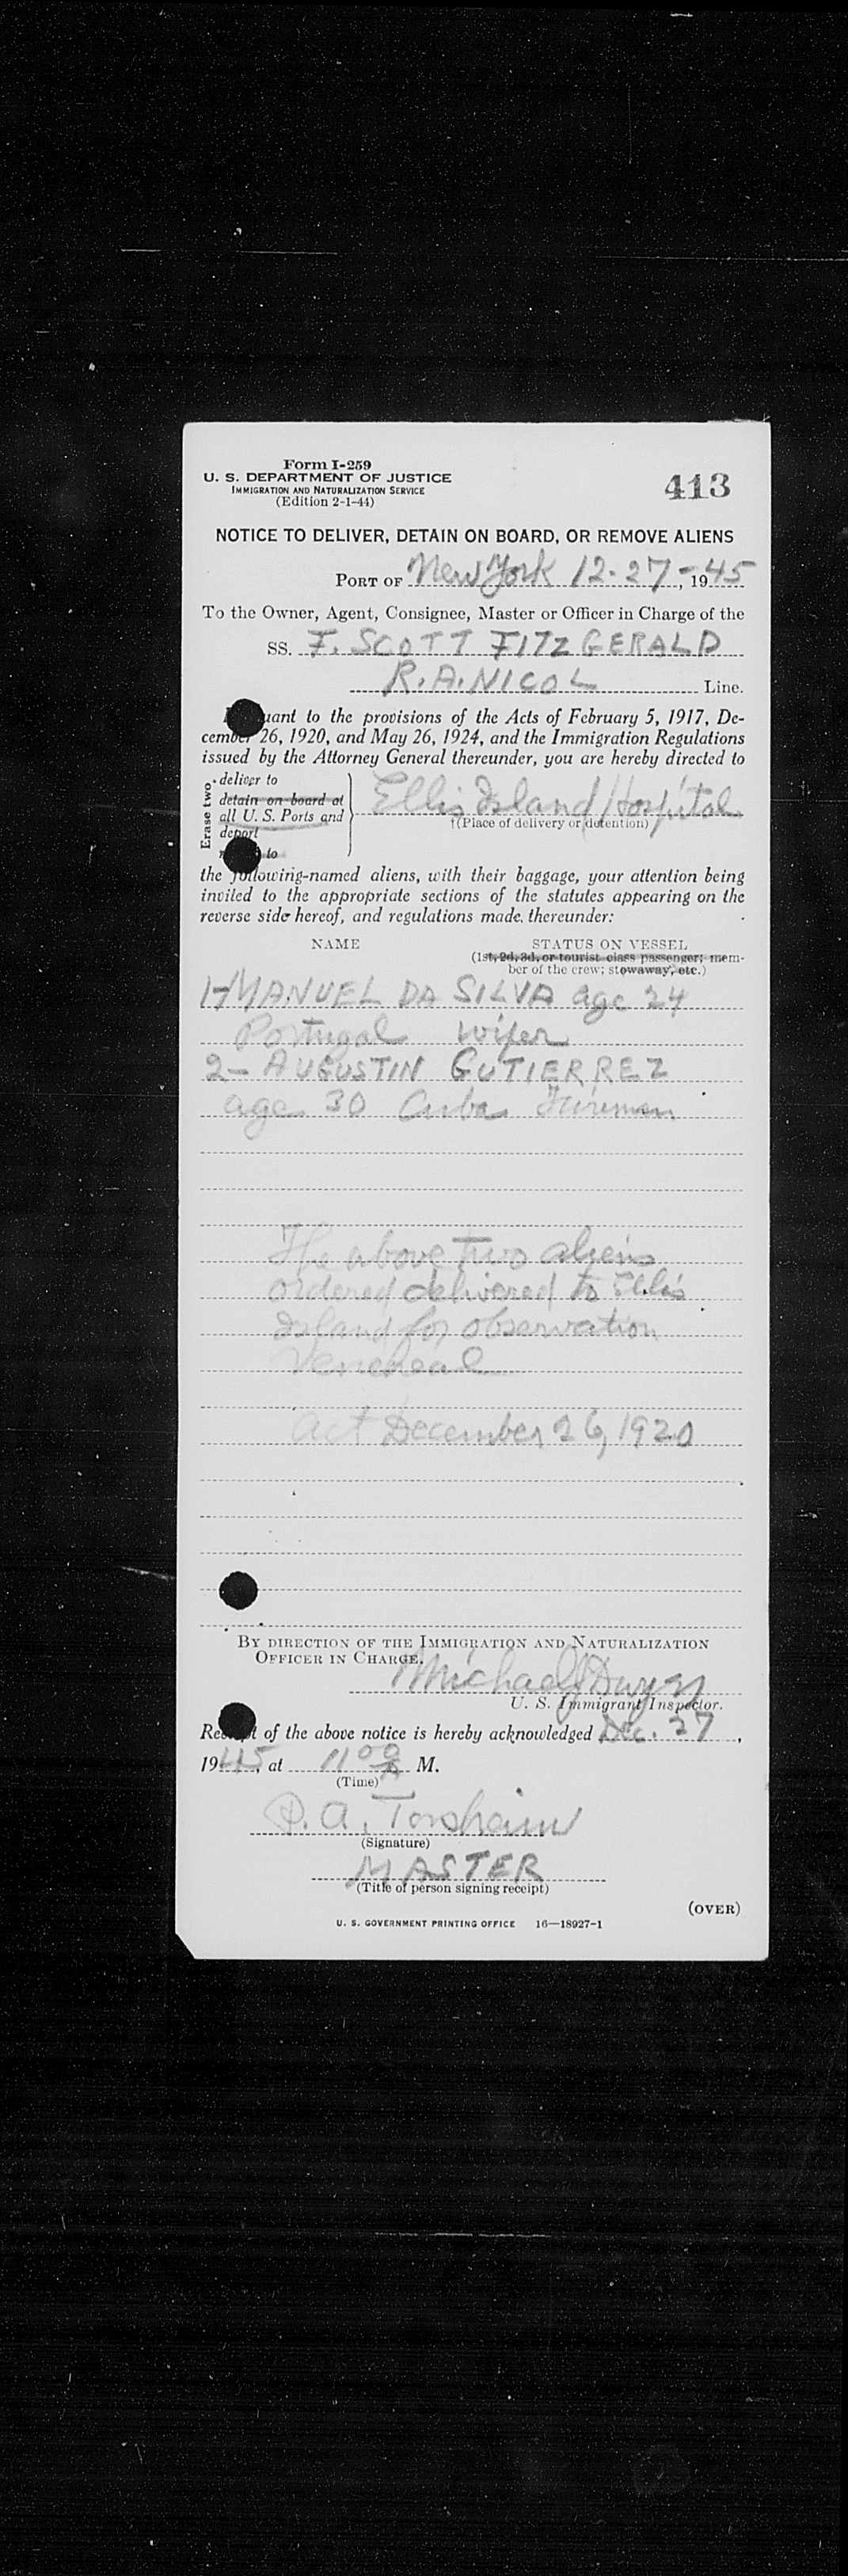 Form I-259
U. S. DEPARTMENT OF JUSTICE
IMMIGRATION AND NATURALIZATION SERVICE
(Edition 2-1-44)
413
NOTICE TO DELIVER, DETAIN ON BOARD, OR REMOVE ALIENS
PORT OF New York 12-27-, 1945
To the Owner, Agent, Consignee, Master or Officer in Charge of the
SS. F. SCOTT FITZGERALD
R.A. NICOL Line.
uant to the provisions of the Acts of February 5, 1917, De-
cember 26, 1920, and May 26, 1924, and the Immigration Regulations
issued by the Attorney General thereunder, you are hereby directed to
Erase two
deliver to
detain on board at
all U. S. Ports and
deport
to
Ellis Island Hospital
†(Place of delivery or detention)
the following-named aliens, with their baggage, your attention being
invited to the appropriate sections of the statutes appearing on the
reverse side hereof, and regulations made thereunder:
NAME STATUS ON VESSEL
(1st, 2d, 3d, or tourist class passenger; mem-
ber of the crew; stowaway, etc.)
1-MANUEL DA SILVA age 24
Portugal wiper
2- AUGUSTIN GUTIERREZ
age 30 Cuba Fireman
The above two aliens
ordered delivered to Ellis
Island for observation
Venereal
Act December 26, 1920
BY DIRECTION OF THE IMMIGRATION AND NATURALIZATION
OFFICER IN CHARGE.
Michael J Dwyer
U. S. Immigrant Inspector.
Receipt of the above notice is hereby acknowledged Dec. 27,
1945, at 11 00 A M.
(Time)
P. A. Torsheim
(Signature)
MASTER
(Title of person signing receipt)
(OVER)
U. S. GOVERNMENT PRINTING OFFICE 16—18927-1